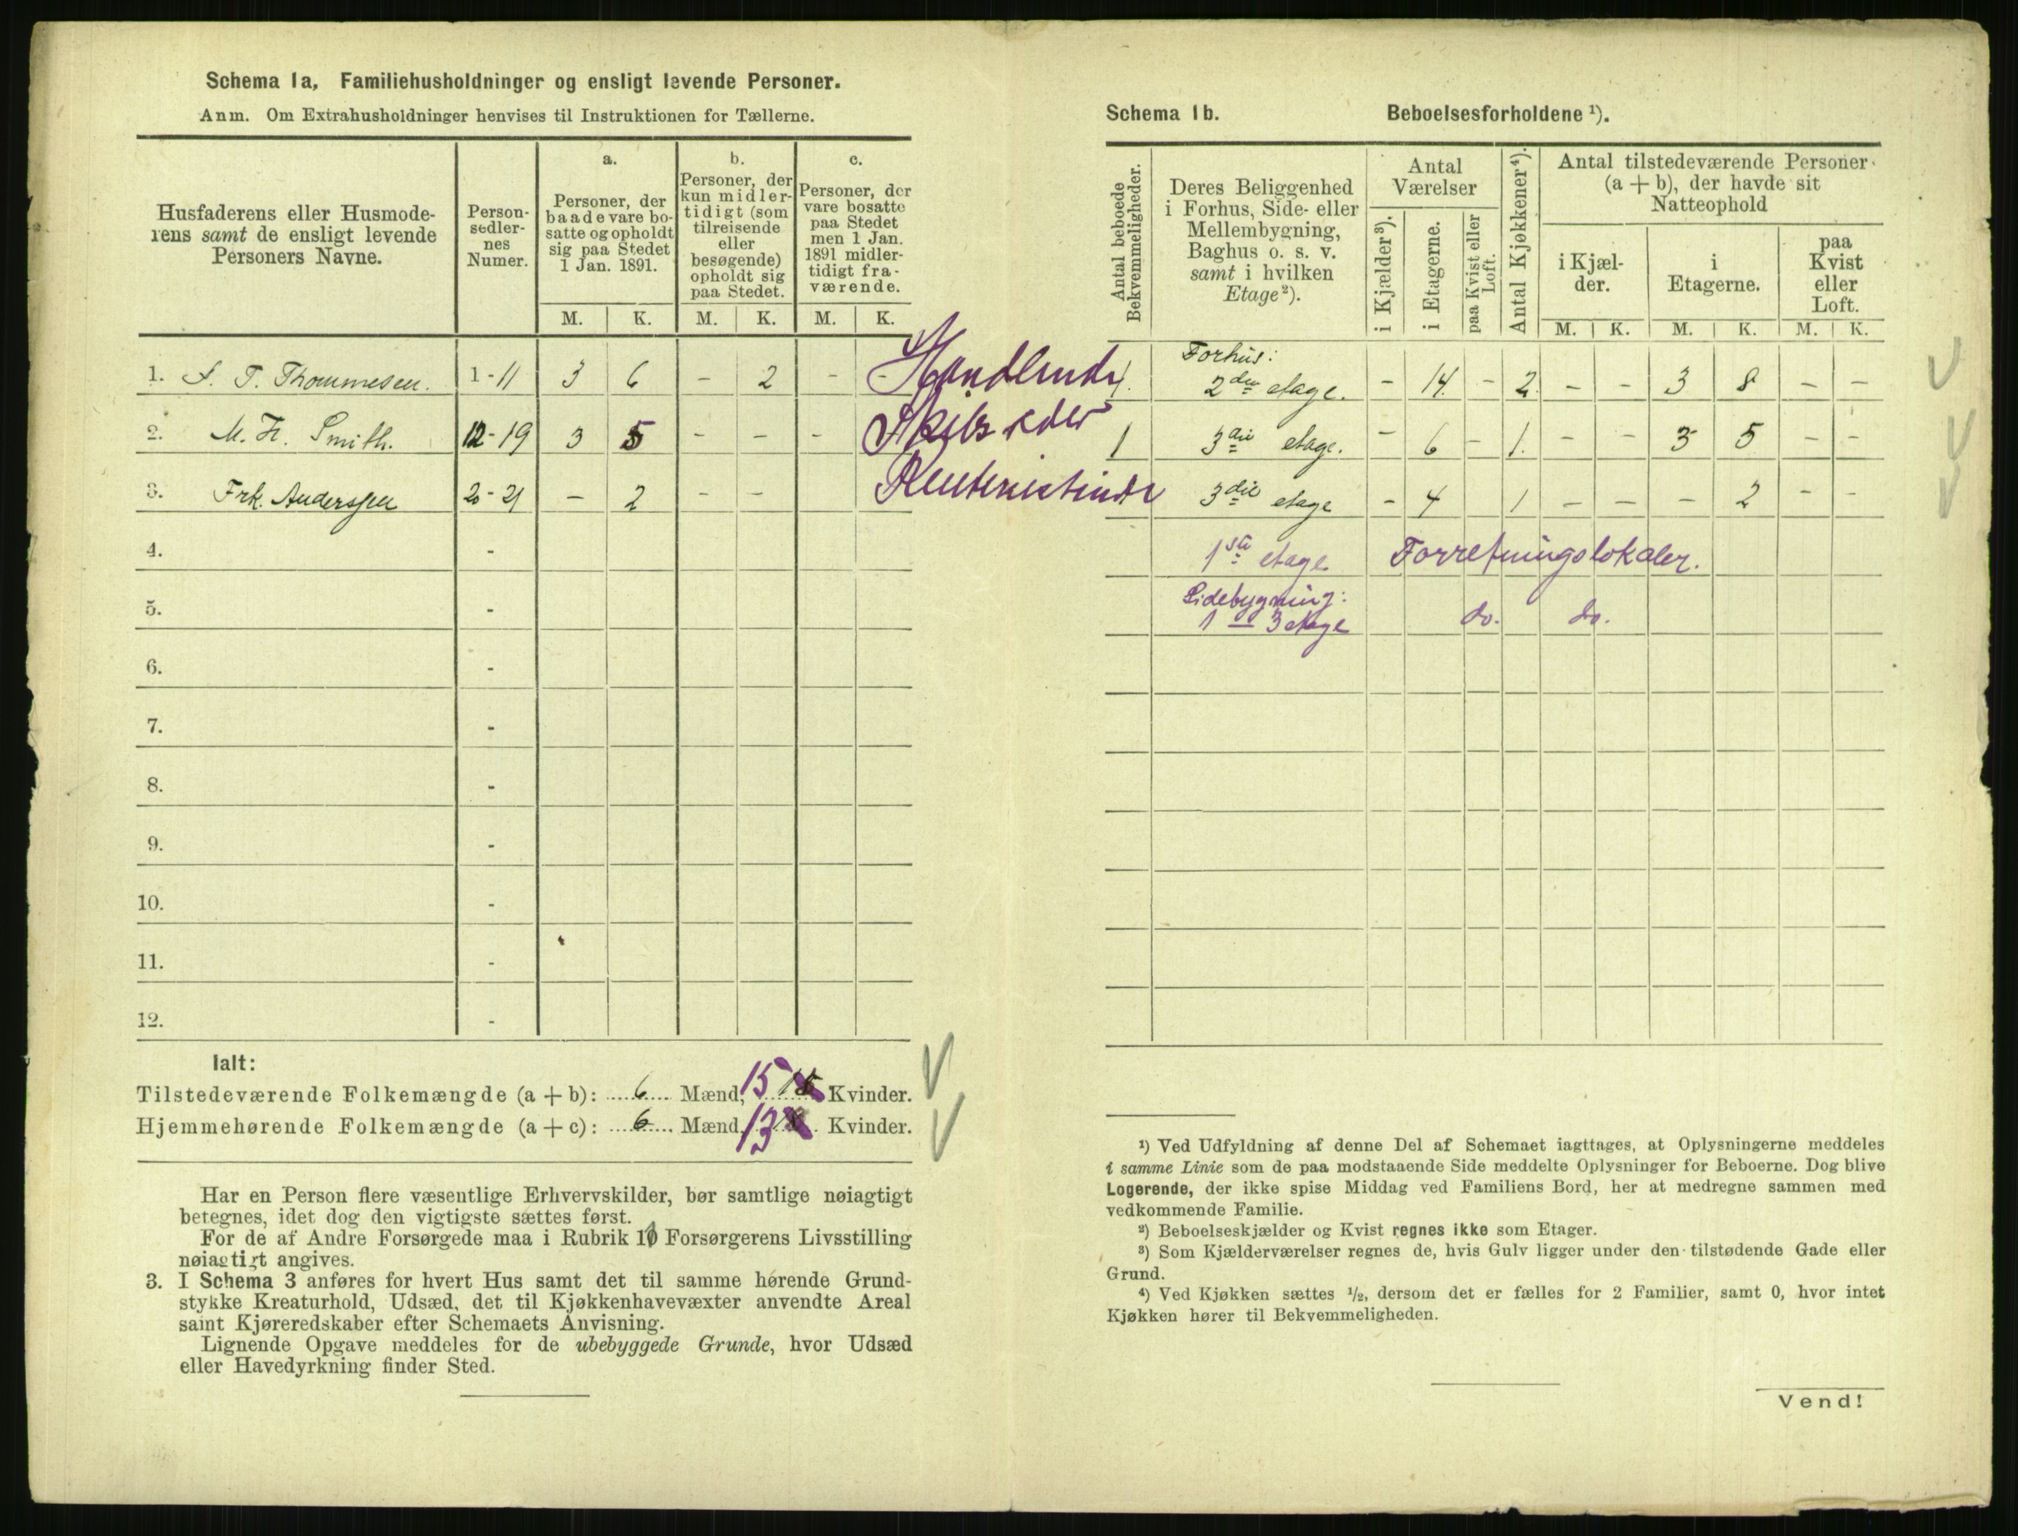 Schema 1a, Familiehusholdninger og ensligt levende Personer.
Anm. Om Extrahusholdninger henvises til Instruktionen for Tællerne.
Husfaderens eller Husmode-
rens samt de ensligt levende
Personers Navne.
Person-
sedler-
nes
Numer.
a.
Personer, der
baade vare bo-
satte og opholdt
sig paa Stedet
1 Jan. 1891.
b.
Personer, der
kun midler-
tidigt (som
tilreisende
eller
besøgende)
opholdt sig
paa Stedet.
c.
Personer, der
vare bosatte
paa Stedet
men 1 Jan.
1891 midler-
tidigt fra-
værende.
M. K. M. K. M. K.
1. T. Thommesen. 1-11 3 6 - 2 - - Handlende
2. M. H. Smith. 12-19 3 5 - - - Skibsreder
3. Frk. Anderssen 20-21 - 2 - - Rentenistinde
4. -
5. -
6. -
7. -
8. -
9. -
10. -
11. -
12. -
Ialt:
Tilstedeværende Folkemængde (a + b): 6 Mænd, 15 Kvinder.
Hjemmehørende Folkemængde (a + c): 6 Mænd, 13 Kvinder.
Har en Person flere væsentlige Erhvervskilder, bør samtlige nøiagtigt
betegnes, idet dog den vigtigste sættes først.
For de af Andre Forsørgede maa i Rubrik 10 Forsørgerens Livsstilling
nøiagtigt angives.
3. I Schema 3 anføres for hvert Hus samt det til samme hørende Grund-
stykke Kreaturhold, Udsæd, det til Kjøkkenhavevæxter anvendte Areal
samt Kjøreredskaber efter Schemaets Anvisning.
Lignende Opgave meddeles for de ubebyggede Grunde, hvor Udsæd
eller Havedyrkning finder Sted.
Schema 1b. Beboelsesforholdene ¹).
Antal beboede
Bekvemmeligheder.
Deres Beliggenhed
i Forhus, Side- eller
Mellembygning,
Baghus o. s. v.
samt i hvilken
Etage ²).
Antal
Værelser
i Kjælder ³).
i Etagerne.
paa Kvist eller
Loft.
Antal Kjøkkener ⁴).
Antal tilstedeværende Personer
(a + b), der havde sit
Natteophold
i Kjæl-
der.
i
Etagerne.
paa
Kvist
eller
Loft.
M. K. M. K. M. K.
Forhus:
1. 2den etage. - 14. - 2. - - 3 8 - -
1 3die etage. - 6 - 1. - - 3 5 - -
3die etage - 4 1 - - - 2 - -
1ste etage Forretningslokaler.
Sidebygning:
1 - 3 etage do. do.
¹) Ved Udfyldning af denne Del af Schemaet iagttages, at Oplysningerne meddeles
i samme Linie som de paa modstaaende Side meddelte Oplysninger for Beboerne. Dog blive
Logerende, der ikke spise Middag ved Familiens Bord, her at medregne sammen med
vedkommende Familie.
²) Beboelseskjælder og Kvist regnes ikke som Etager.
³) Som Kjælderværelser regnes de, hvis Gulv ligger under den tilstødende Gade eller
Grund.
⁴) Ved Kjøkken sættes ½, dersom det er fælles for 2 Familier, samt 0, hvor intet
Kjøkken hører til Bekvemmeligheden.
Vend!